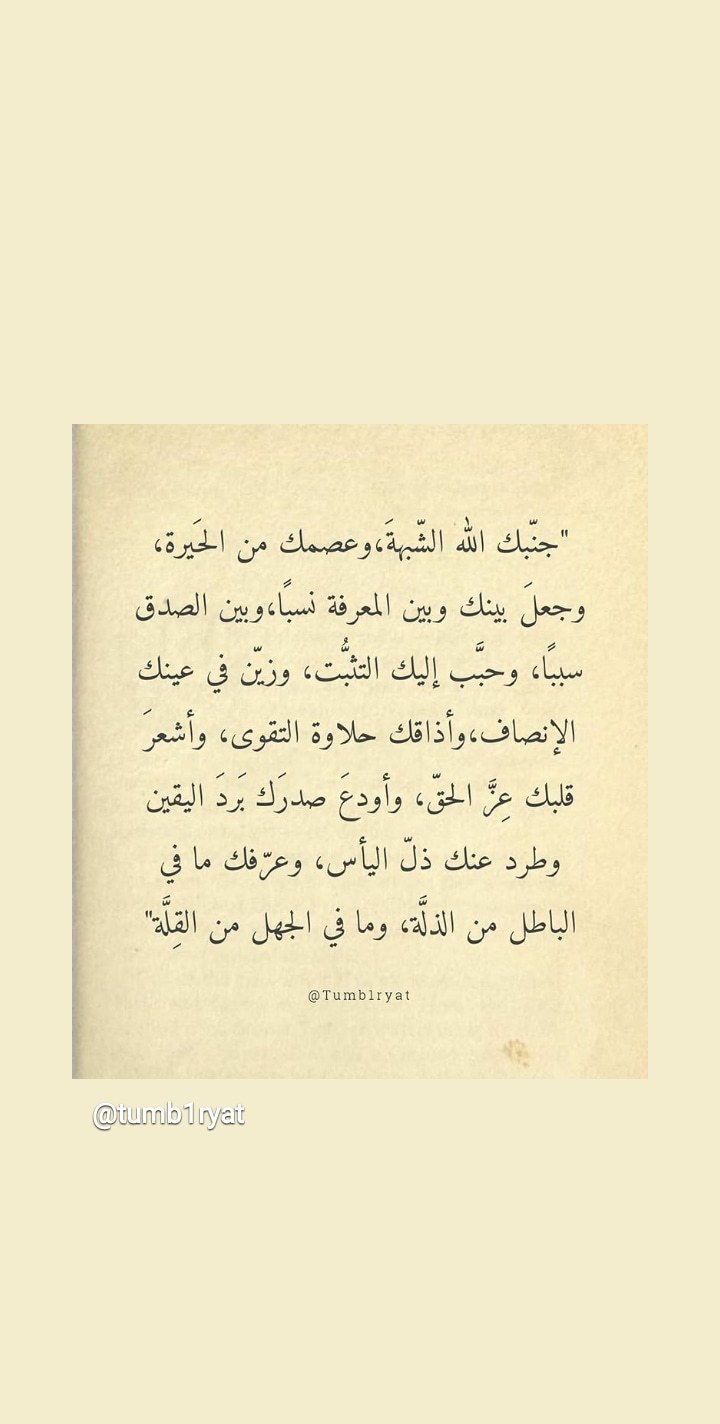 "جنّبك الله الشّبهةَ،وعصمك من الحَيرة،
وجعلَ بينك وبين المعرفة نسبًا،وبين الصدق
سببًا، وحبَّب إليك التثبُّت، وزيّن في عينك
الإنصاف،وأذاقك حلاوة التقوى، وأشعرَ
قلبك عِزَّ الحقّ، وأودعَ صدرَك بَردَ اليقين
وطرد عنك ذلّ اليأس، وعرّفك ما في
الباطل من الذلَّة، وما في الجهل من القِلَّة"
@Tumb1ryat
@tumb1ryat